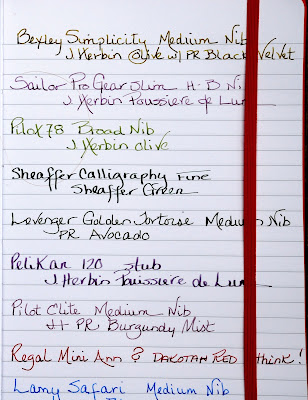 Bexley Simplicity Medium Nib
J Herbin Olive w/ PR Black Velvet
Sailor Pro Gear Slim H-B Ni
J Herbin Poussiere de Lun
Pilot 78 Broad Nib
J Herbin Olive
Sheaffer Calligraphy Fine
Sheaffer Green
Levenger Golden Tortoise Medium Nib
PR Avocado
Pelikan 120 stub
J Herbin Poussiere de Lun
Pilot Elite Medium Nib
PR Burgundy Mist
Regal Mini Ann ? Dakotan Red think!
Lamy Safari Medium Nib